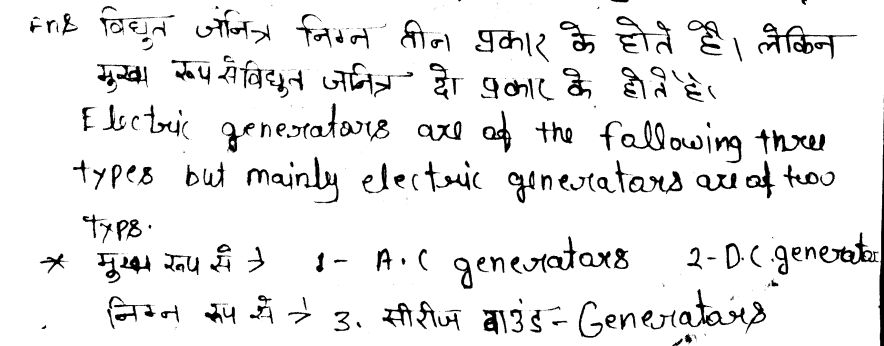 Ans विद्युत जनित्र निम्न तीन प्रकार के होते है। लेकिन
मुख्य रूप से विद्युत जनित्र दो प्रकार के होते है।
Electric generators are of the following three
types but mainly electric generators are of two
typs.
* मुख्य रूप से → 1- A.C generators 2-D.C.generator
निम्न रूप से → 3. सीरीज वाउंड- Generators